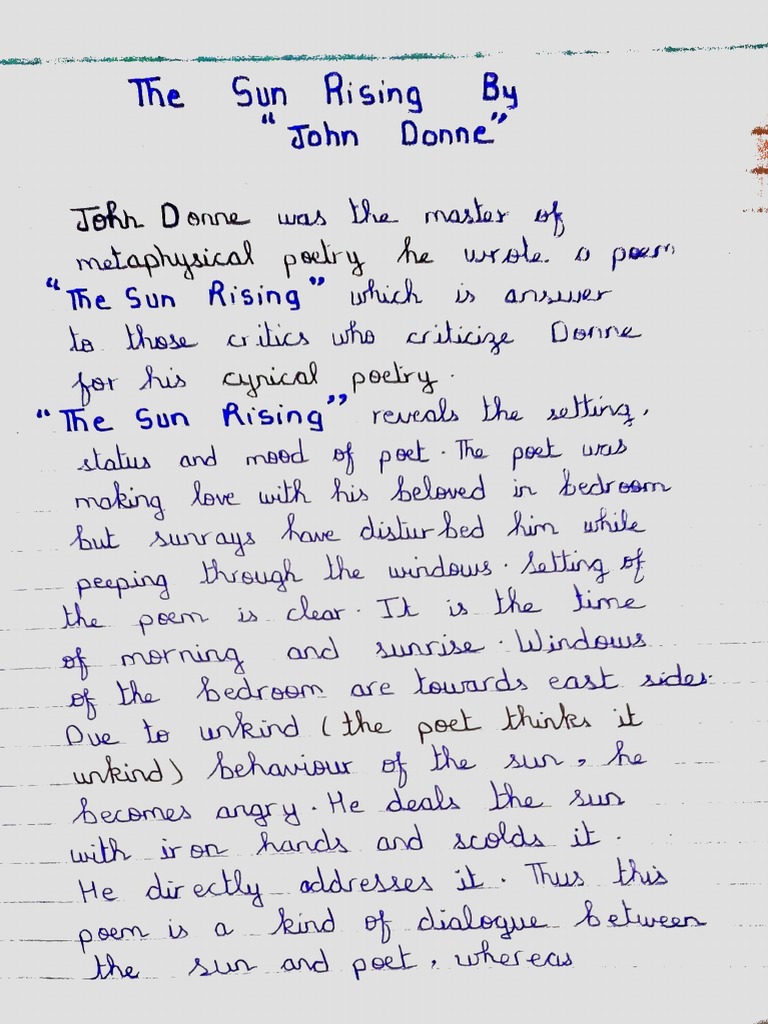 The Sun Rising By
"John Donne"
John Donne was the master of
metaphysical poetry he wrote a poem
"The Sun Rising" which is answer
to those critics who criticize Donne
for his cynical poetry.
"The Sun Rising" reveals the setting,
status and mood of poet. The poet was
making love with his beloved in bedroom
but sunrays have disturbed him while
peeping through the windows. Setting of
the poem is clear. It is the time
of morning and sunrise. Windows
of the bedroom are towards east sides.
Due to unkind (the poet thinks it
unkind) behaviour of the sun, he
becomes angry. He deals the sun
with iron hands and scolds it.
He directly addresses it. Thus this
poem is a kind of dialogue between
the sun and poet, whereas